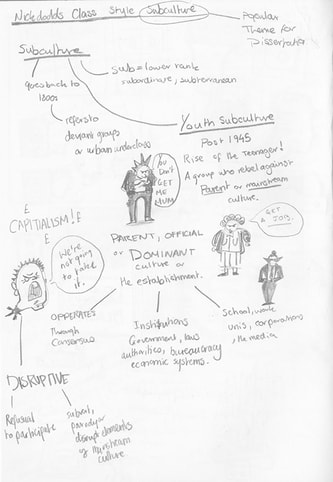 Nickdodds Class Style Subculture
Popular
Theme for
Dissertation
Subculture
Sub = lower rank
subordinate, subterranean
goes back to
1800s
refers to
deviant groups
or urban underclass
Youth Subculture
Post 1945
Rise of the Teenager!
A group who rebel against
Parent or mainstream
culture.
YOU
DON'T
GET
ME
MUM
£
CAPITALISM! £
£
We're
not going
to take
it.
PARENT, OFFICIAL
or DOMINANT
culture or
the establishment.
GET
A JOB.
OPPERATES
Through
Consensus
Institutions
Government, laws
authorities, bureaucracy
economic systems.
School, work
unis, corporations
, the media
DISRUPTIVE
Refusual
to participate
subvert,
parody or
disrupt elements
of mainstream
culture.